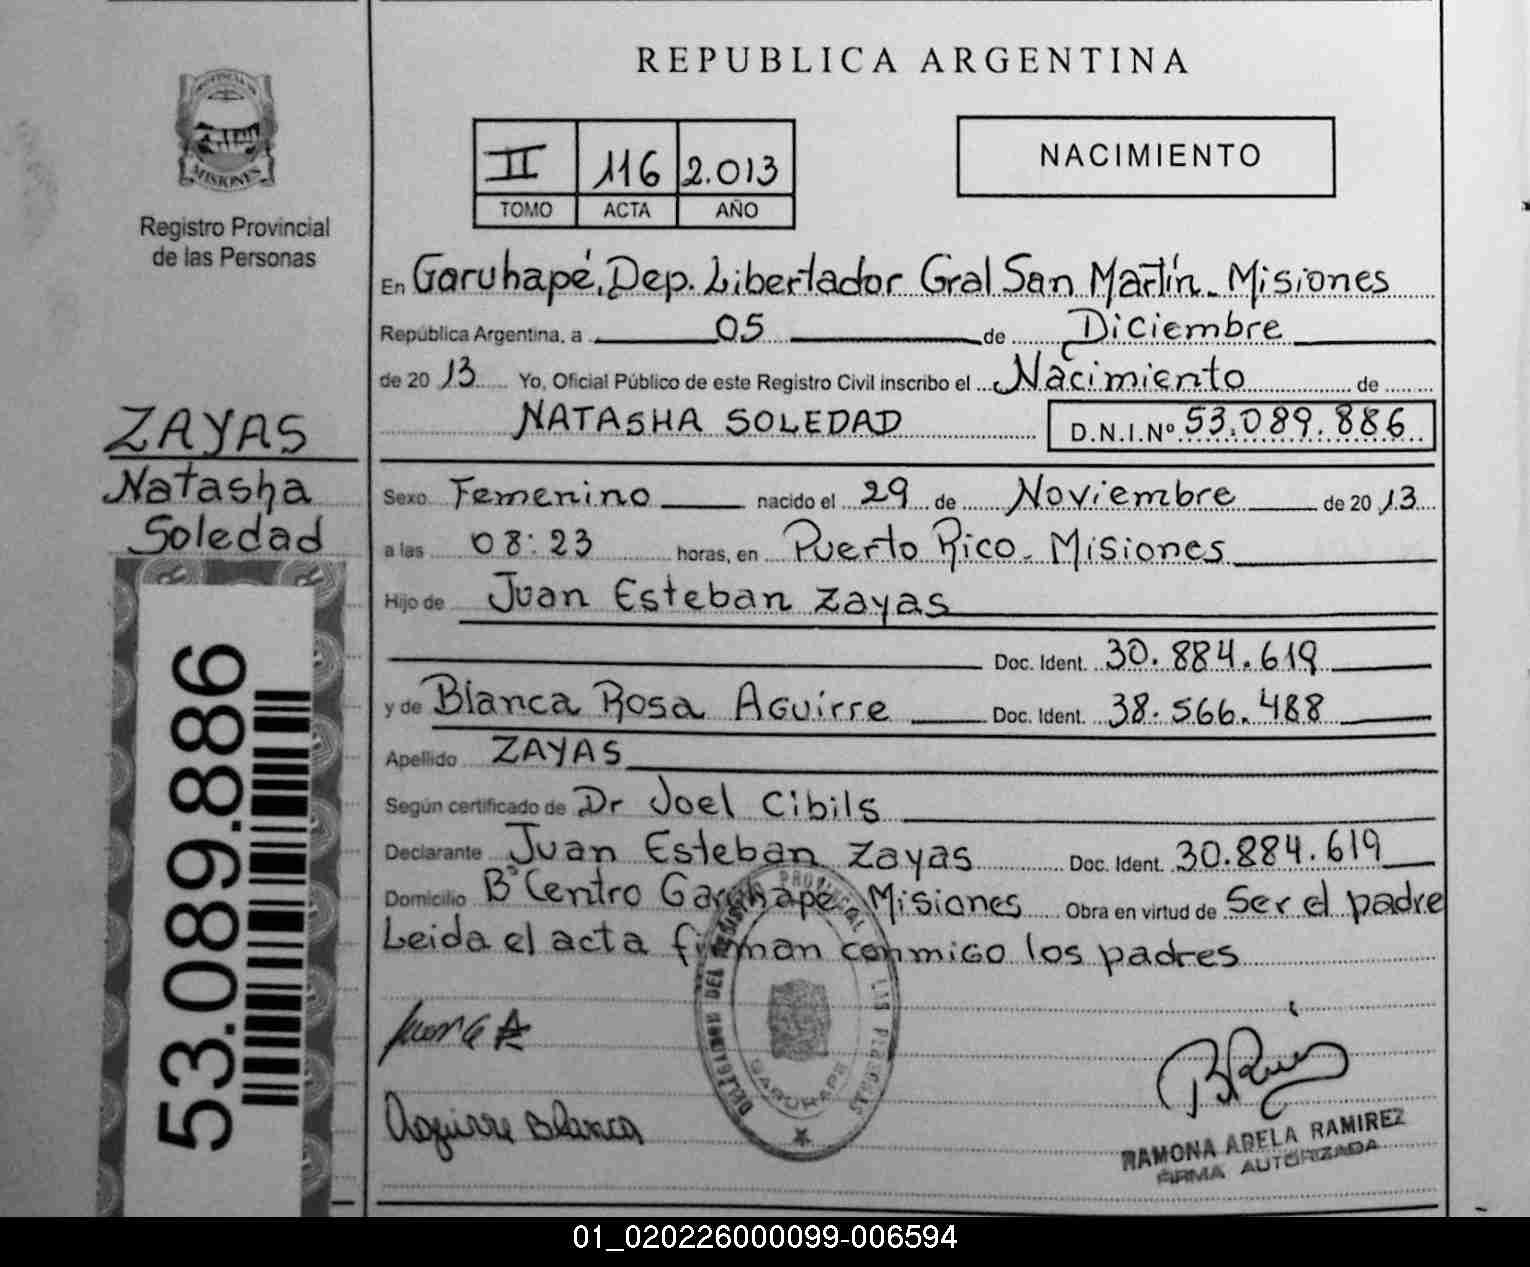 REPUBLICA ARGENTINA
MISIONES
Registro Provincial
de las Personas
II 116 2.013
TOMO ACTA AÑO
NACIMIENTO
En Garuhapé, Dep. Libertador Gral San Martín. Misiones
República Argentina, a 05 de Diciembre
de 20 13 Yo, Oficial Público de este Registro Civil inscribo el Nacimiento de
NATASHA SOLEDAD D.N.I.Nº 53.089.886
ZAYAS
Natasha
Soledad
53.089.886
Sexo Femenino nacido el 29 de Noviembre de 20 13
a las 08:23 horas, en Puerto Rico. Misiones
Hijo de Juan Esteban Zayas
Doc. Ident. 30.884.619
y de Blanca Rosa Aguirre Doc. Ident. 38.566.488
Apellido ZAYAS
Según certificado de Dr Joel Cibils
Declarante Juan Esteban Zayas Doc. Ident. 30.884.619
Domicilio Bº Centro Garuhapé. Misiones Obra en virtud de Ser el padre
Leida el acta firman conmigo los padres
Aguirre Blanca
GARUHAPE
RAMONA ADELA RAMIREZ
FIRMA AUTORIZADA
01_020226000099-006594